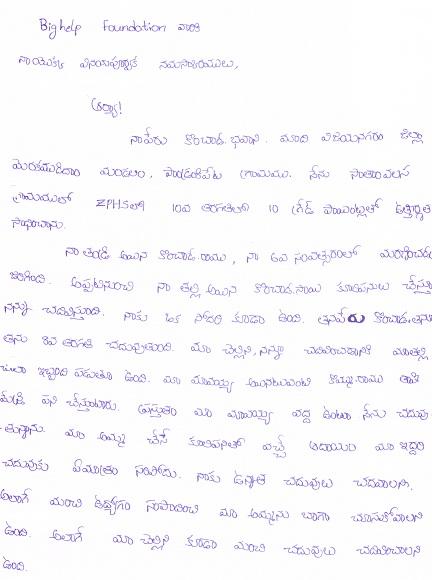 Bighelp Foundation వారికి
నా యొక్క వినయపూర్వక నమస్కారములు,
ఆర్యా!
నాపేరు కొంచాడ. భవాని. మాది విజయనగరం జిల్లా
మెరకముడిదాం మండలం, గ్రామము. నేను సాతాంవలస
గ్రామములో ZPHSలో 10వ తరగతిలో 10 గ్రేడ్ పాయింట్లతో ఉత్తీర్ణత
సాధించాను.
నా తండ్రి అయిన కొంచాడ. రాము, నా 6వ సంవత్సరంలో మరణించడం
జరిగింది. అప్పటినుంచి నా తల్లి అయిన కొంచాడ. సాయి కూలిపనులు చేస్తూ
నన్ను చదివిస్తుంది. నాకు ఒక సోదరి కూడా ఉంది. తనపేరు కొంచాడ.
తను 8వ తరగతి చదువుతుంది. మా చెల్లిని, నన్నూ చదివించడానికి మాతల్లి
చాలా ఇబ్బంది పడుతూ ఉంది. మా మావయ్య అయినటువంటి రాము తాపీ
మేస్త్రి పని చేస్తుంటారు. ప్రస్తుతం మా మావయ్య వద్ద ఉంటూ నేను చదువు-
తున్నాను. మా అమ్మ చేసే కూలిపనితో వచ్చే ఆదాయం మా ఇద్దరి
చదువుకు ఏమాత్రం సరిపోదు. నాకు ఉన్నత చదువులు చదవాలని,
అలాగే మంచి ఉద్యోగం సంపాదించి మా అమ్మను బాగా చూసుకోవాలని
ఉంది. అలాగే మా చెల్లిని కూడా మంచి చదువులు చదివించాలని
ఉంది.